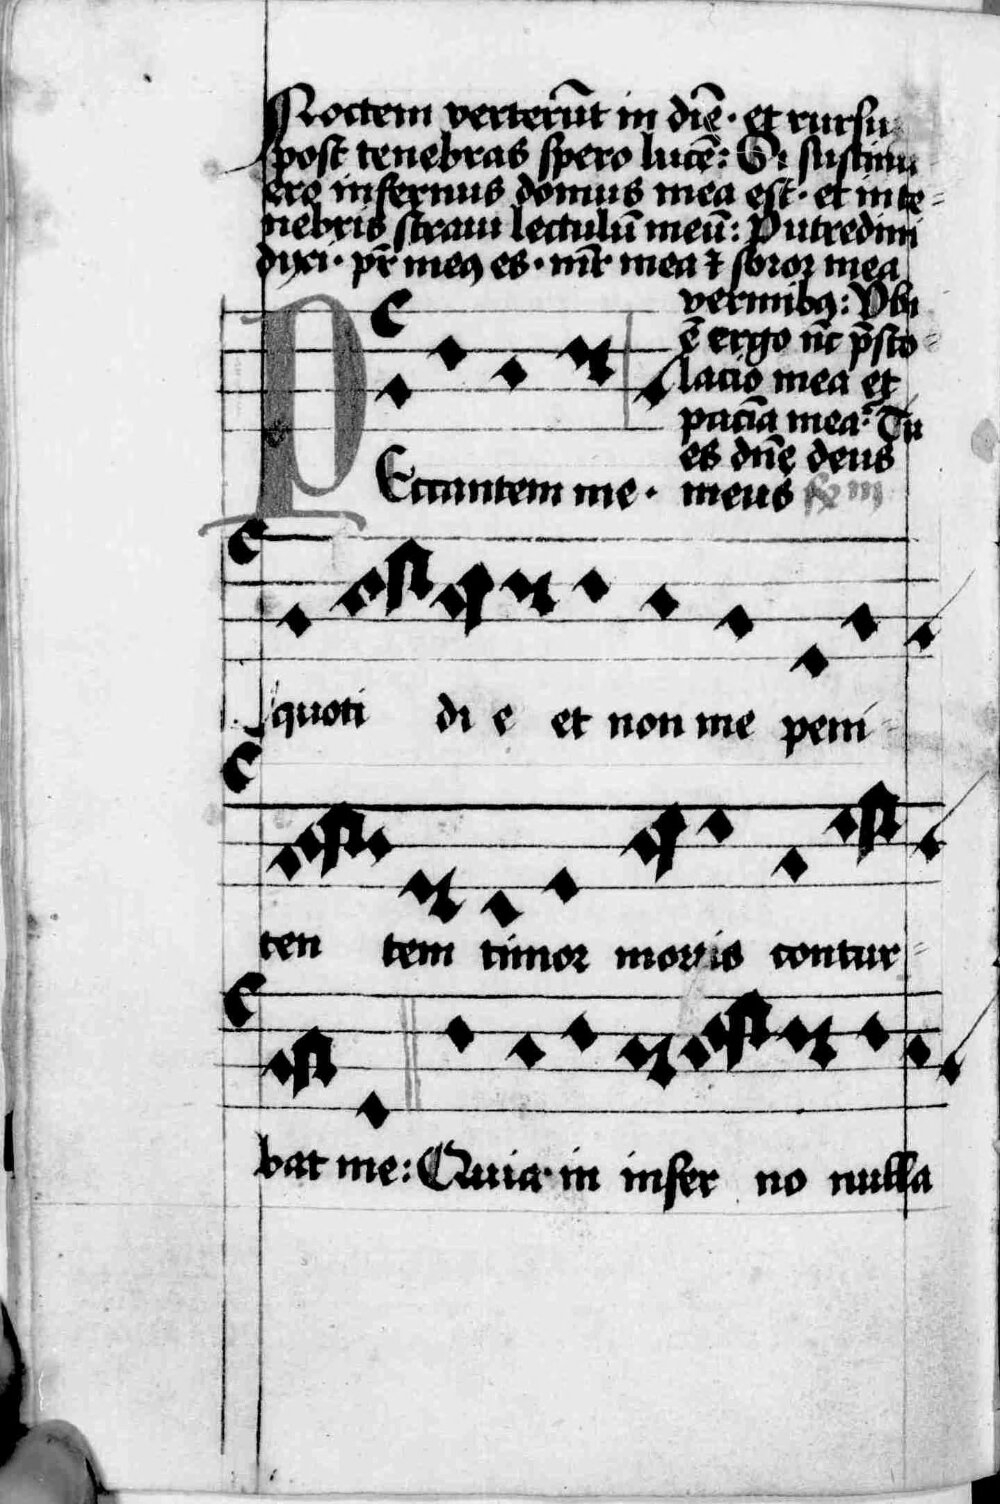 Noctem verterūt in diē · et rursu
post tenebras spero lucē : Si sustinu
ero infernus domus mea est · et in te-
nebris straui lectulū meū : Putredini
dixi · pr̄ meꝯ es · mr̄ mea ⁊ soror mea
vermibꝯ : Vbi
ē ergo nc̄ p̄sto-
lacio mea et
paciā mea : Tu
es dn̄e deus
meus
PEccantem me ·
quoti di e et non me peni-
ten tem timor mortis contur-
bat me : Quia in infer no nulla